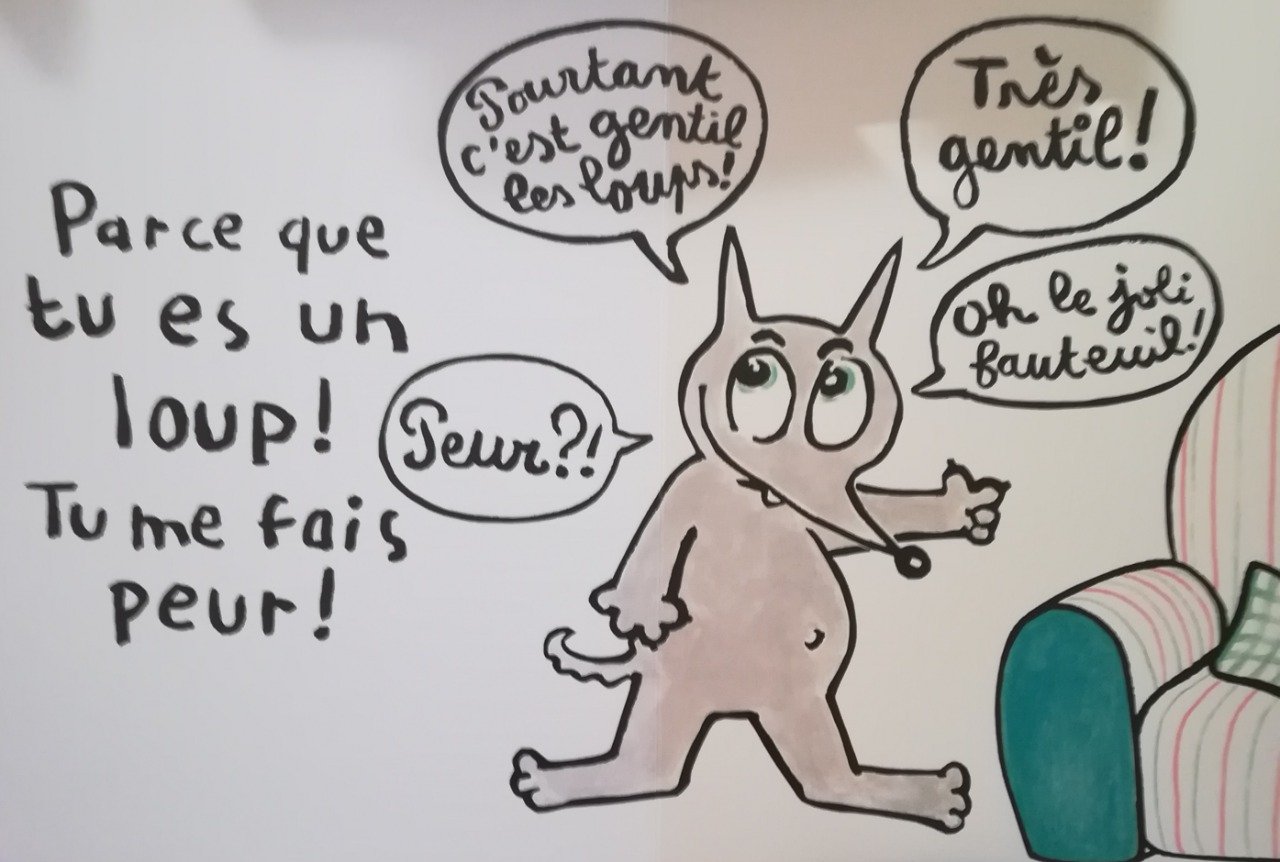 Parce que
tu es un
loup!
Tu me fais
peur!
Peur?!
Pourtant
c'est gentil
les loups!
Très
gentil!
Oh le joli
fauteuil!